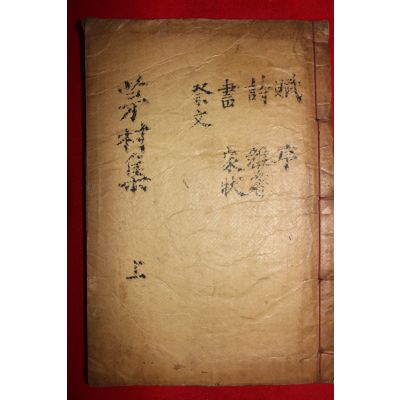 賦 序
詩 雜著
書 家狀
祭文
村集 上